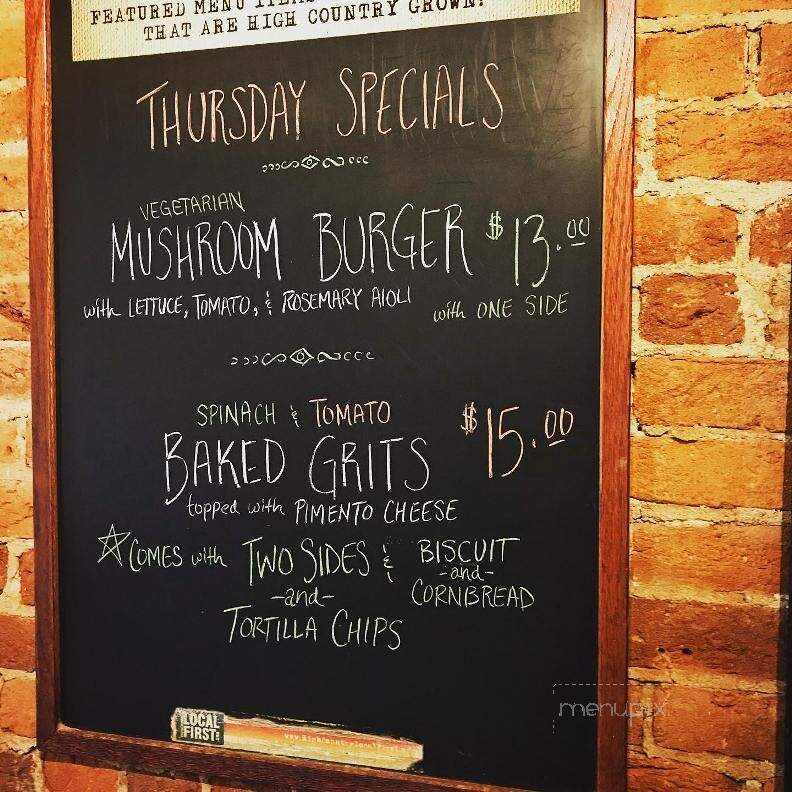 FEATURED MENU ITEMS
THAT ARE HIGH COUNTRY GROWN!
THURSDAY SPECIALS
VEGETARIAN
MUSHROOM BURGER $13.00
with LETTUCE, TOMATO, & ROSEMARY AIOLI with ONE SIDE
SPINACH & TOMATO
BAKED GRITS $15.00
topped with PIMENTO CHEESE
☆ COMES with TWO SIDES & BISCUIT
-and- -and-
TORTILLA CHIPS CORNBREAD
LOCAL
FIRST
menupix